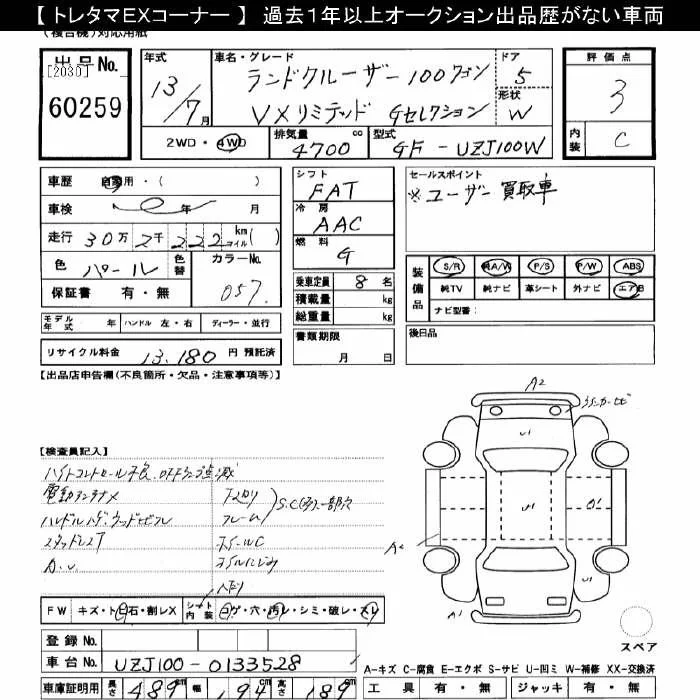 【 トレタマEXコーナー 】 過去1年以上オークション出品歴がない車両
（複合機）対応用紙
出品No.
[2030]
60259
年式
13/7月
車名・グレード
ランドクルーザー100ワゴン
VXリミテッド Gセレクション
ドア
5
形状
W
評価点
3
内装
C
2WD・4WD
排気量
4700 cc
型式
GF-UZJ100W
車歴 自家用・( )
車検 年 月
走行 30万 2千 222 km マイル ( )
色 パール
色替
カラーNo.
057
保証書 有・無
モデル年式 年
ハンドル 左・右
ディーラー・並行
リサイクル料金 13,180 円 預託済
シフト
FAT
冷房
AAC
燃料
G
乗車定員 8 名
積載量 kg
総重量 kg
書類期限
月 日
セールスポイント
※ユーザー買取車
装備品
S/R 純A/W P/S P/W ABS
純TV 純ナビ 革シート 外ナビ エアB
ナビ型番：
後日品
【出品店申告欄(不良箇所・欠品・注意事項等)】
【検査員記入】
ハイトコントロール不良 OFFランプ点滅
電動アンテナメ
スタッドレス
A.U
下廻り
フレーム
S.C(多)一部穴
ホイールC
オイルにじみ
A2
U1
U1
U1
A2
A1
FW キズ・トビ石・割レX
シート内装 コゲ・穴・汚レ・シミ・破レ・スレ
登録No.
車台No. UZJ100-0133528
車庫証明用 長さ 489 cm 幅 194 cm 高さ 189 cm
スペア
A-キズ C-腐食 E-エクボ S-サビ U-凹ミ W-補修 XX-交換済
工具 有・無 ジャッキ 有・無